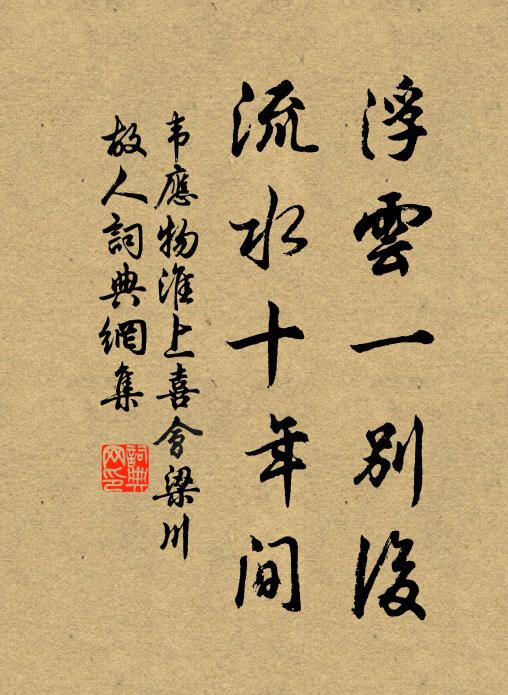 浮雲一别後
流水十年间
韦應物淮上喜會梁川
故人詞典網集
詞典
网印